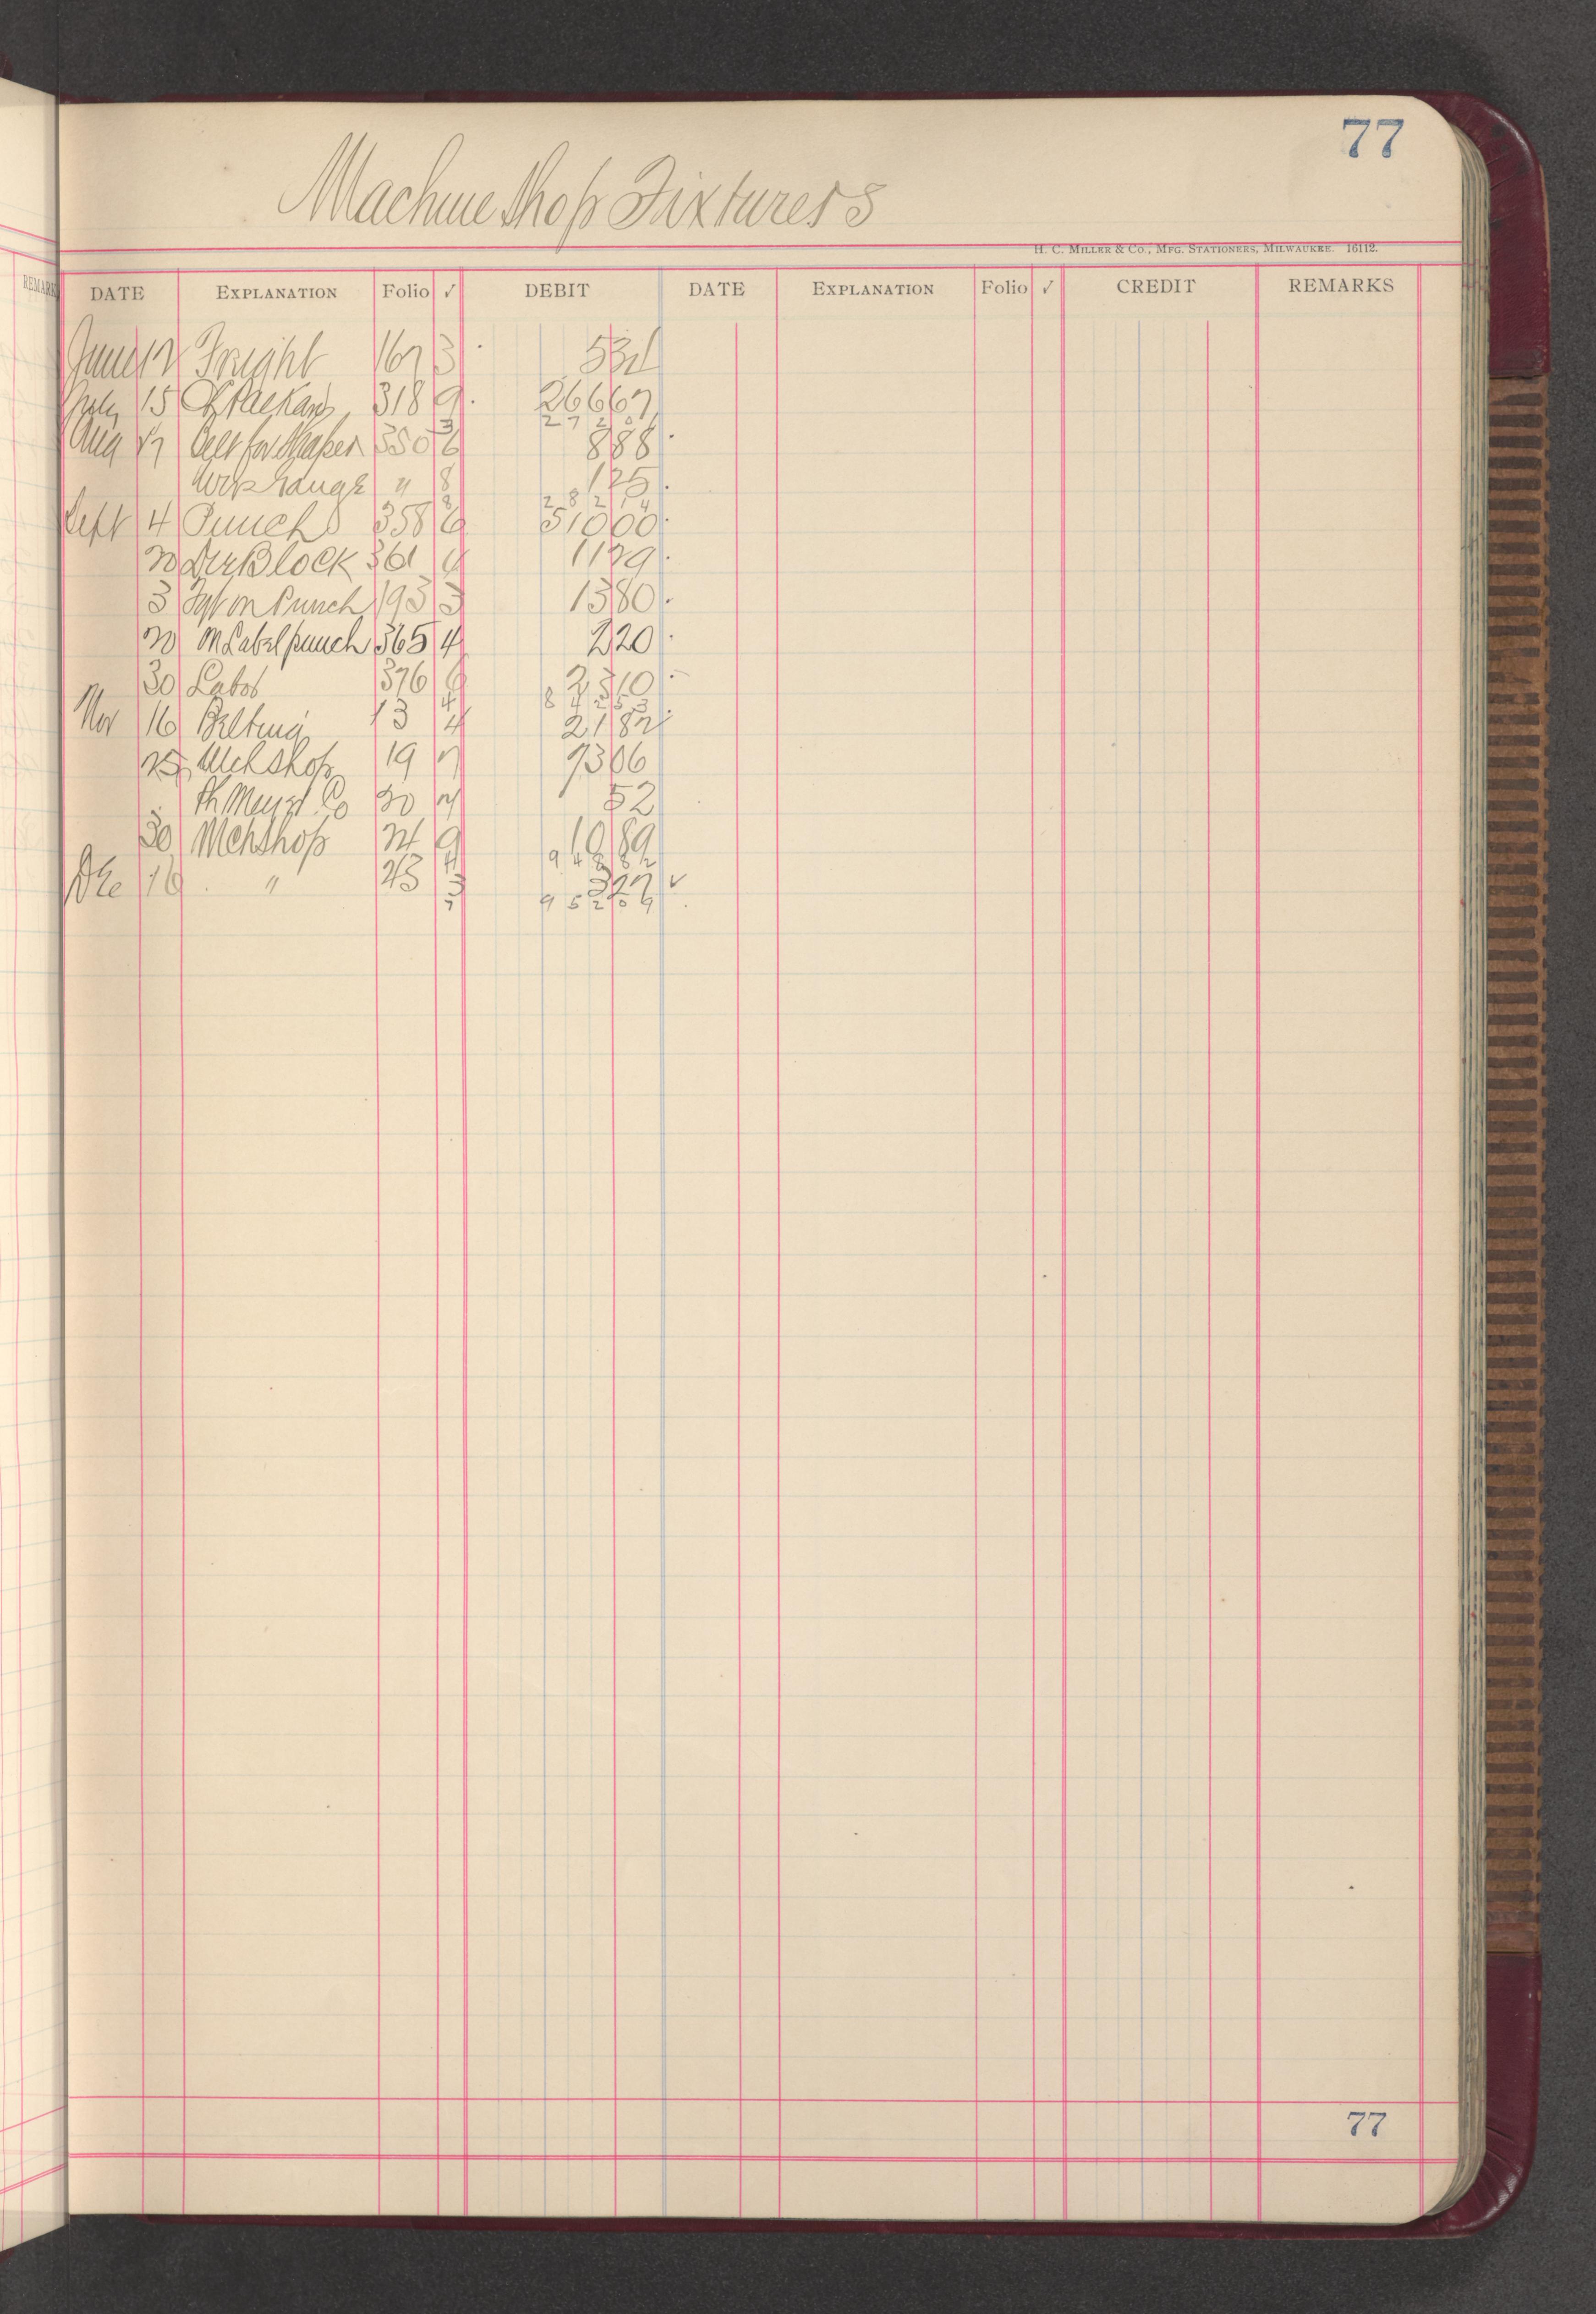 77
Machine Shop Fixturers
H. C. MILLER & CO., MFG. STATIONERS, MILWAUKEE. 16112.
REMARK
DATE EXPLANATION Folio ✓ DEBIT DATE EXPLANATION Folio ✓ CREDIT REMARKS
June 12 Freight 167 3 534
July 15 318 9 26667
3 27201
Aug 17 Belt for Shaper 350 6 888
Gauge " 8 125
8 28214
Sept 4 Punch 358 6 51000
20 Die Block 361 4 1179
3 Fgt on Punch 193 3 1380
20 On Label punch 365 4 220
30 Labor 376 6 2310
4 84253
Nov 16 Belting 13 4 2182
25 Mch Shop 19 7 7306
Co 20 4 52
30 Mch Shop 24 9 1089
4 94882
Dec 16 " 43 3 327 ✓
7 95209
77